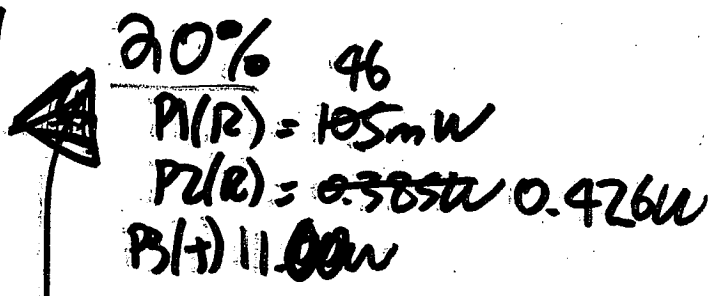 20% 46
P1(R) = 105mW
P2(R) = 0.385W 0.426W
P3(t) 11.00W